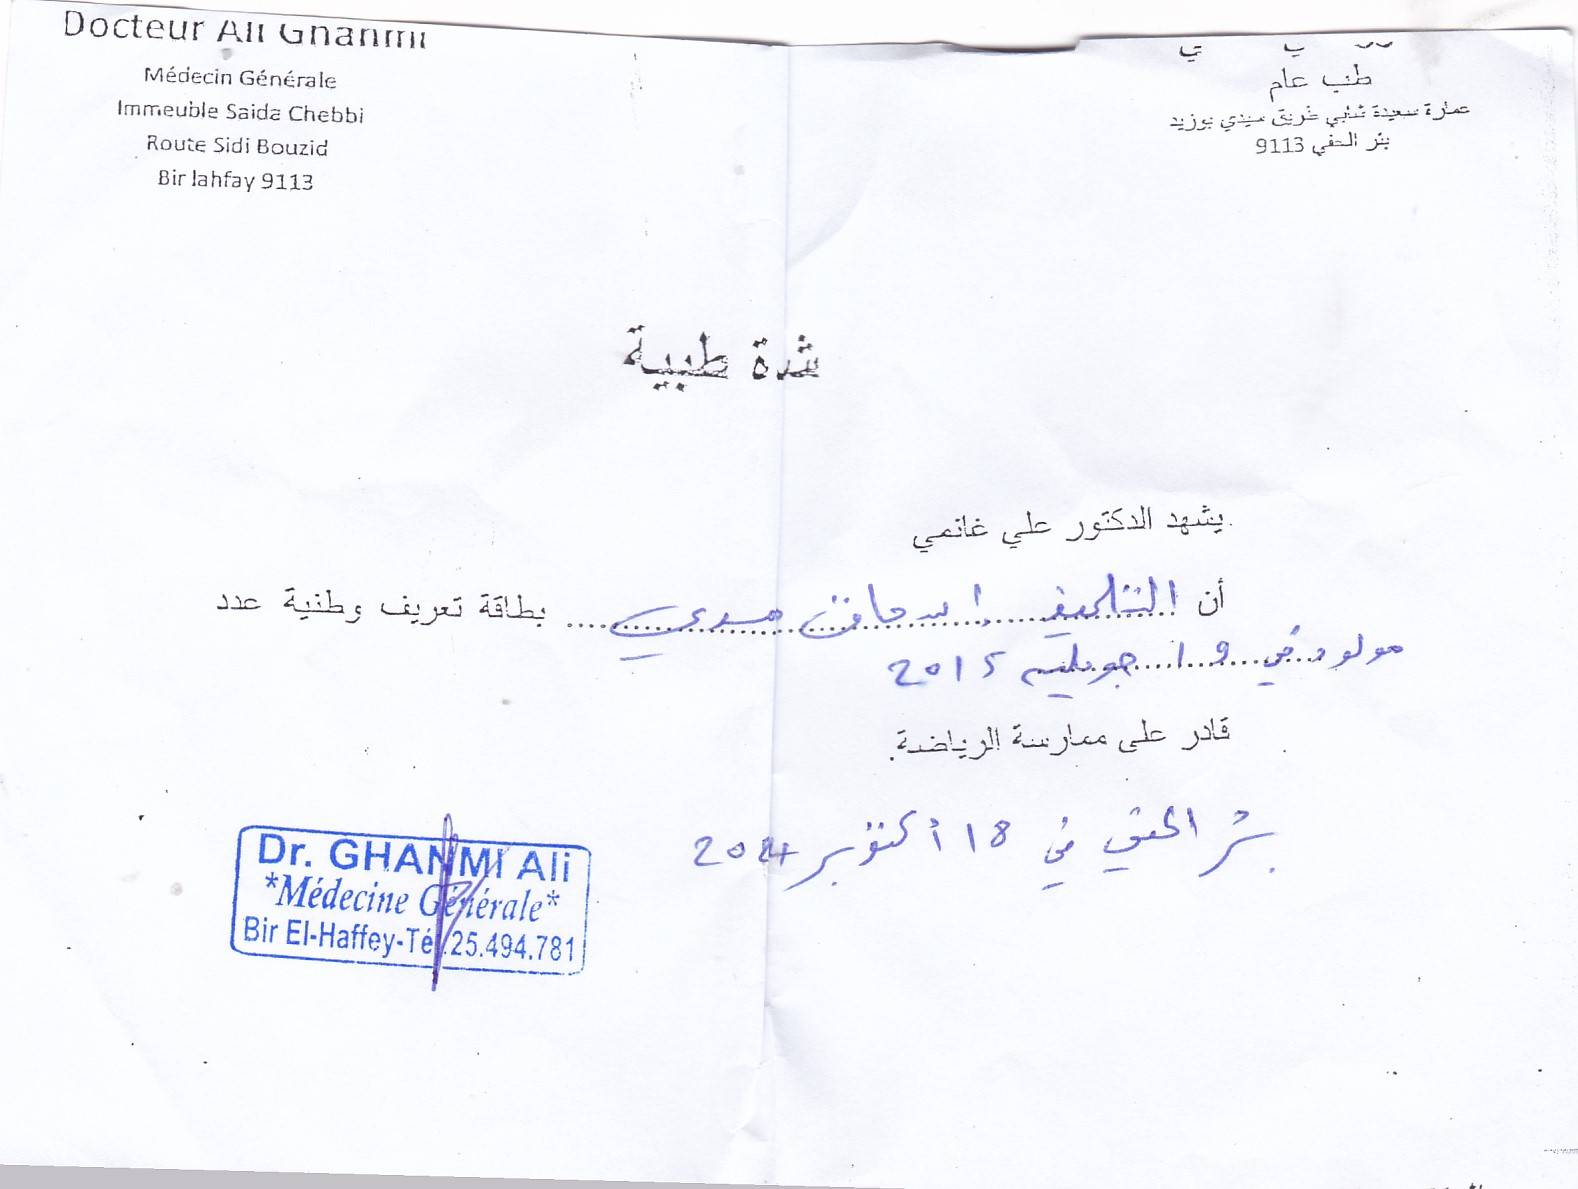 Docteur Ali Ghanmi
Médecin Générale
Immeuble Saida Chebbi
Route Sidi Bouzid
Bir lahfay 9113
طب عام
عمارة سعيدة شابي طريق سيدي بوزيد
بئر الحفي 9113
شدة طبية
يشهد الدكتور علي غانمي
أن التلميذ إسحاق حمدي بطاقة تعريف وطنية عدد
مولود في 19 جويلية 2015
قادر على ممارسة الرياضة.
بئر الحفي في 18 أكتوبر 2024
Dr. GHANMI Ali
*Médecine Générale*
Bir El-Haffey-Tél.25.494.781